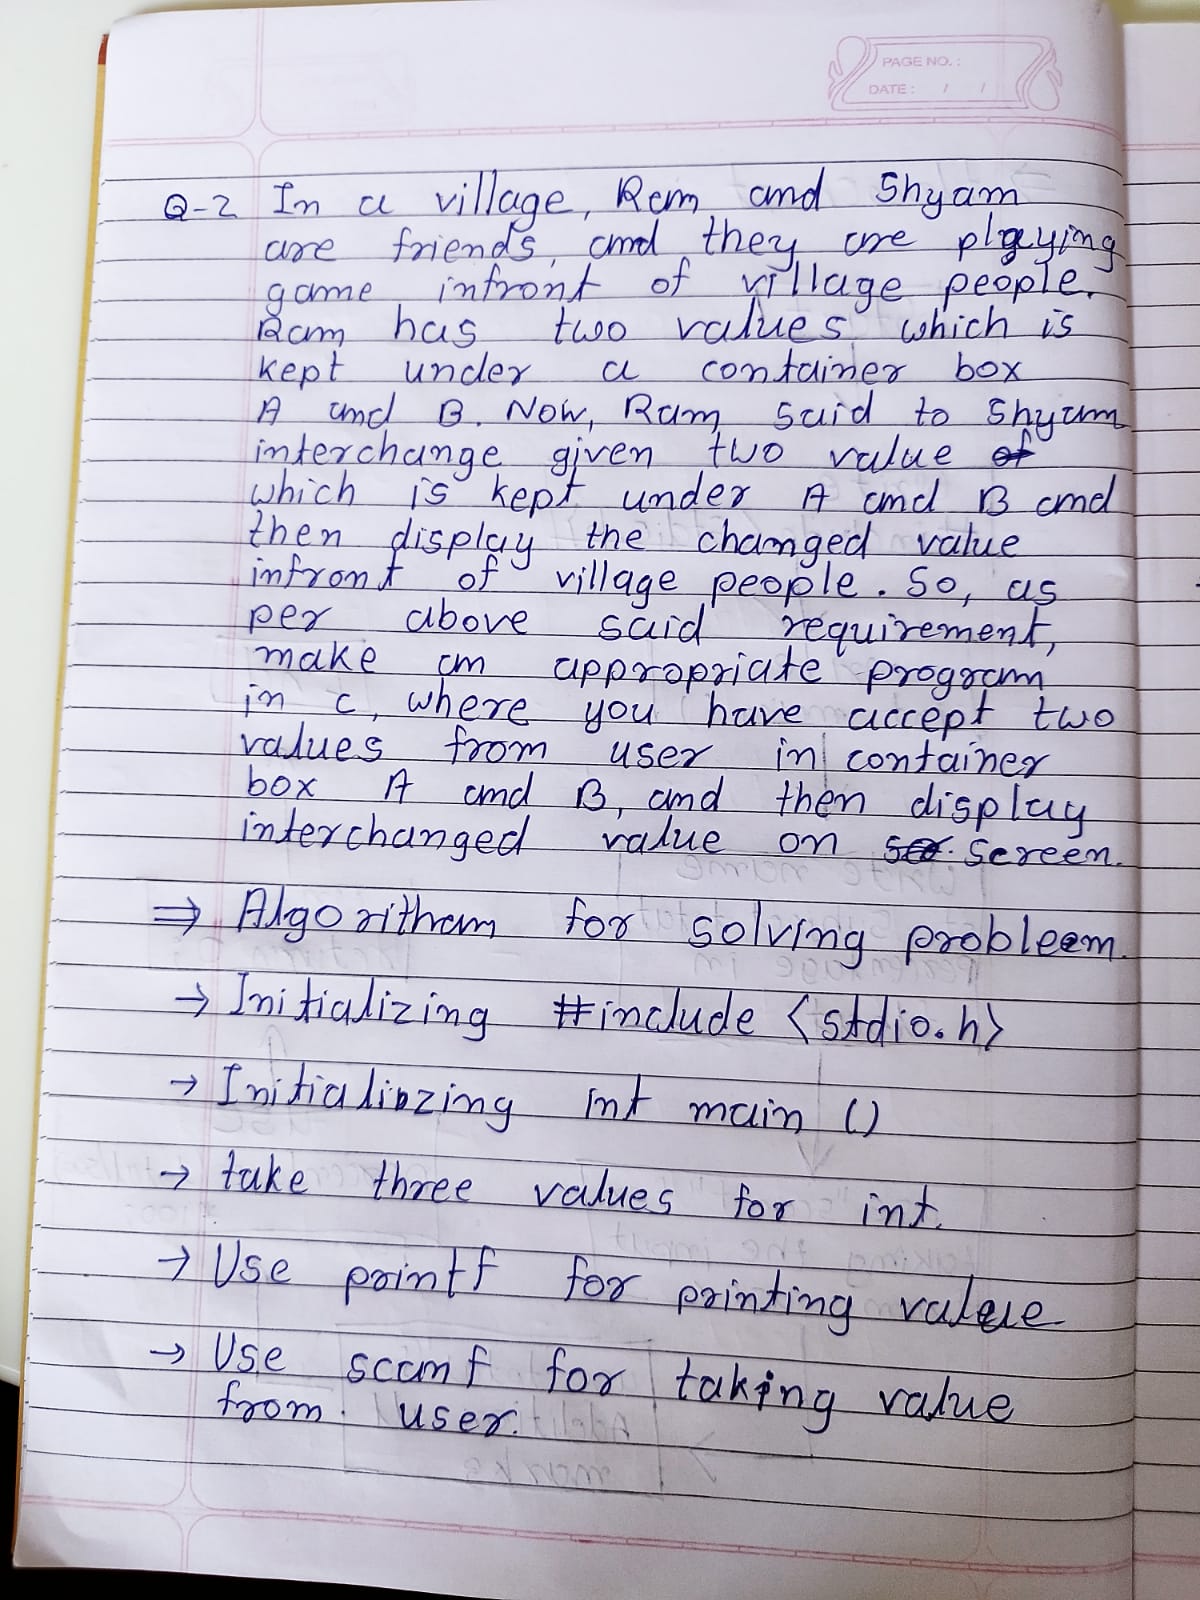 PAGE NO. :
DATE : / /
Q-2 In a village, Ram and Shyam
are friends, and they are playing
game infront of village people.
Ram has two values which is
kept under a container box
A and B. Now, Ram said to Shyam
interchange given two value of
which is kept under A and B and
then display the changed value
infront of village people. So, as
per above said requirement,
make an appropriate program
in c, where you have accept two
values from user in container
box A and B, and then display
interchanged value on screen.
⇒ Algoritham for solving probleem.
→ Initializing #include <stdio.h>
→ Initializing int main ()
→ take three values for int.
→ Use printf for printing value
→ Use scanf for taking value
from user.